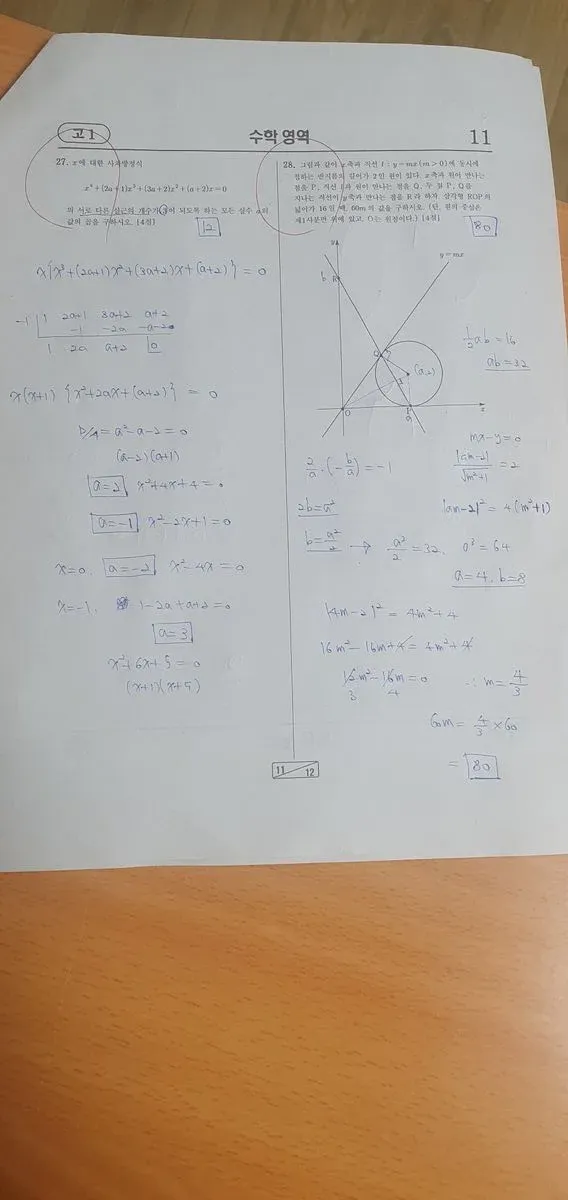 고1
수학 영역
11
27. x에 대한 사차방정식
x⁴+(2a+1)x³+(3a+2)x²+(a+2)x=0
의 서로 다른 실근의 개수가 3이 되도록 하는 모든 실수 a의
값의 곱을 구하시오. [4점]
12
x{x³+(2a+1)x²+(3a+2)x+(a+2)} = 0
-1 | 1 2a+1 3a+2 a+2
-1 -2a -a-2
1 2a a+2 0
x(x+1) {x²+2ax+(a+2)} = 0
D/4 = a²-a-2=0
(a-2)(a+1)
a=2, x²+4x+4=0
a=-1, x²-2x+1=0
x=0. a=-2, x²-4x=0
x=-1. 1-2a+a+2=0
a=3
x²+6x+5=0
(x+1)(x+5)
28. 그림과 같이 x축과 직선 l : y=mx(m>0)에 동시에
접하는 반지름의 길이가 2인 원이 있다. x축과 원이 만나는
점을 P, 직선 l과 원이 만나는 점을 Q, 두 점 P, Q를
지나는 직선이 y축과 만나는 점을 R라 하자. 삼각형 ROP의
넓이가 16일 때, 60m의 값을 구하시오. (단, 원의 중심은
제1사분면 위에 있고, O는 원점이다.) [4점]
80
y
y=mx
b R
Q
(a,2)
2
O
P
a
x
½ab=16
ab=32
mx-y=0
|am-2|/√m²+1 = 2
|am-2|² = 4(m²+1)
2/a·(-b/a) = -1
2b=a²
b=a²/2 → a²/2=32. a³=64
a=4. b=8
|4m-2|² = 4m²+4
16m²-16m+4 = 4m²+4
12m²-16m=0 ∴ m=4/3
3 4
60m = 4/3 ×60
= 80
11 12